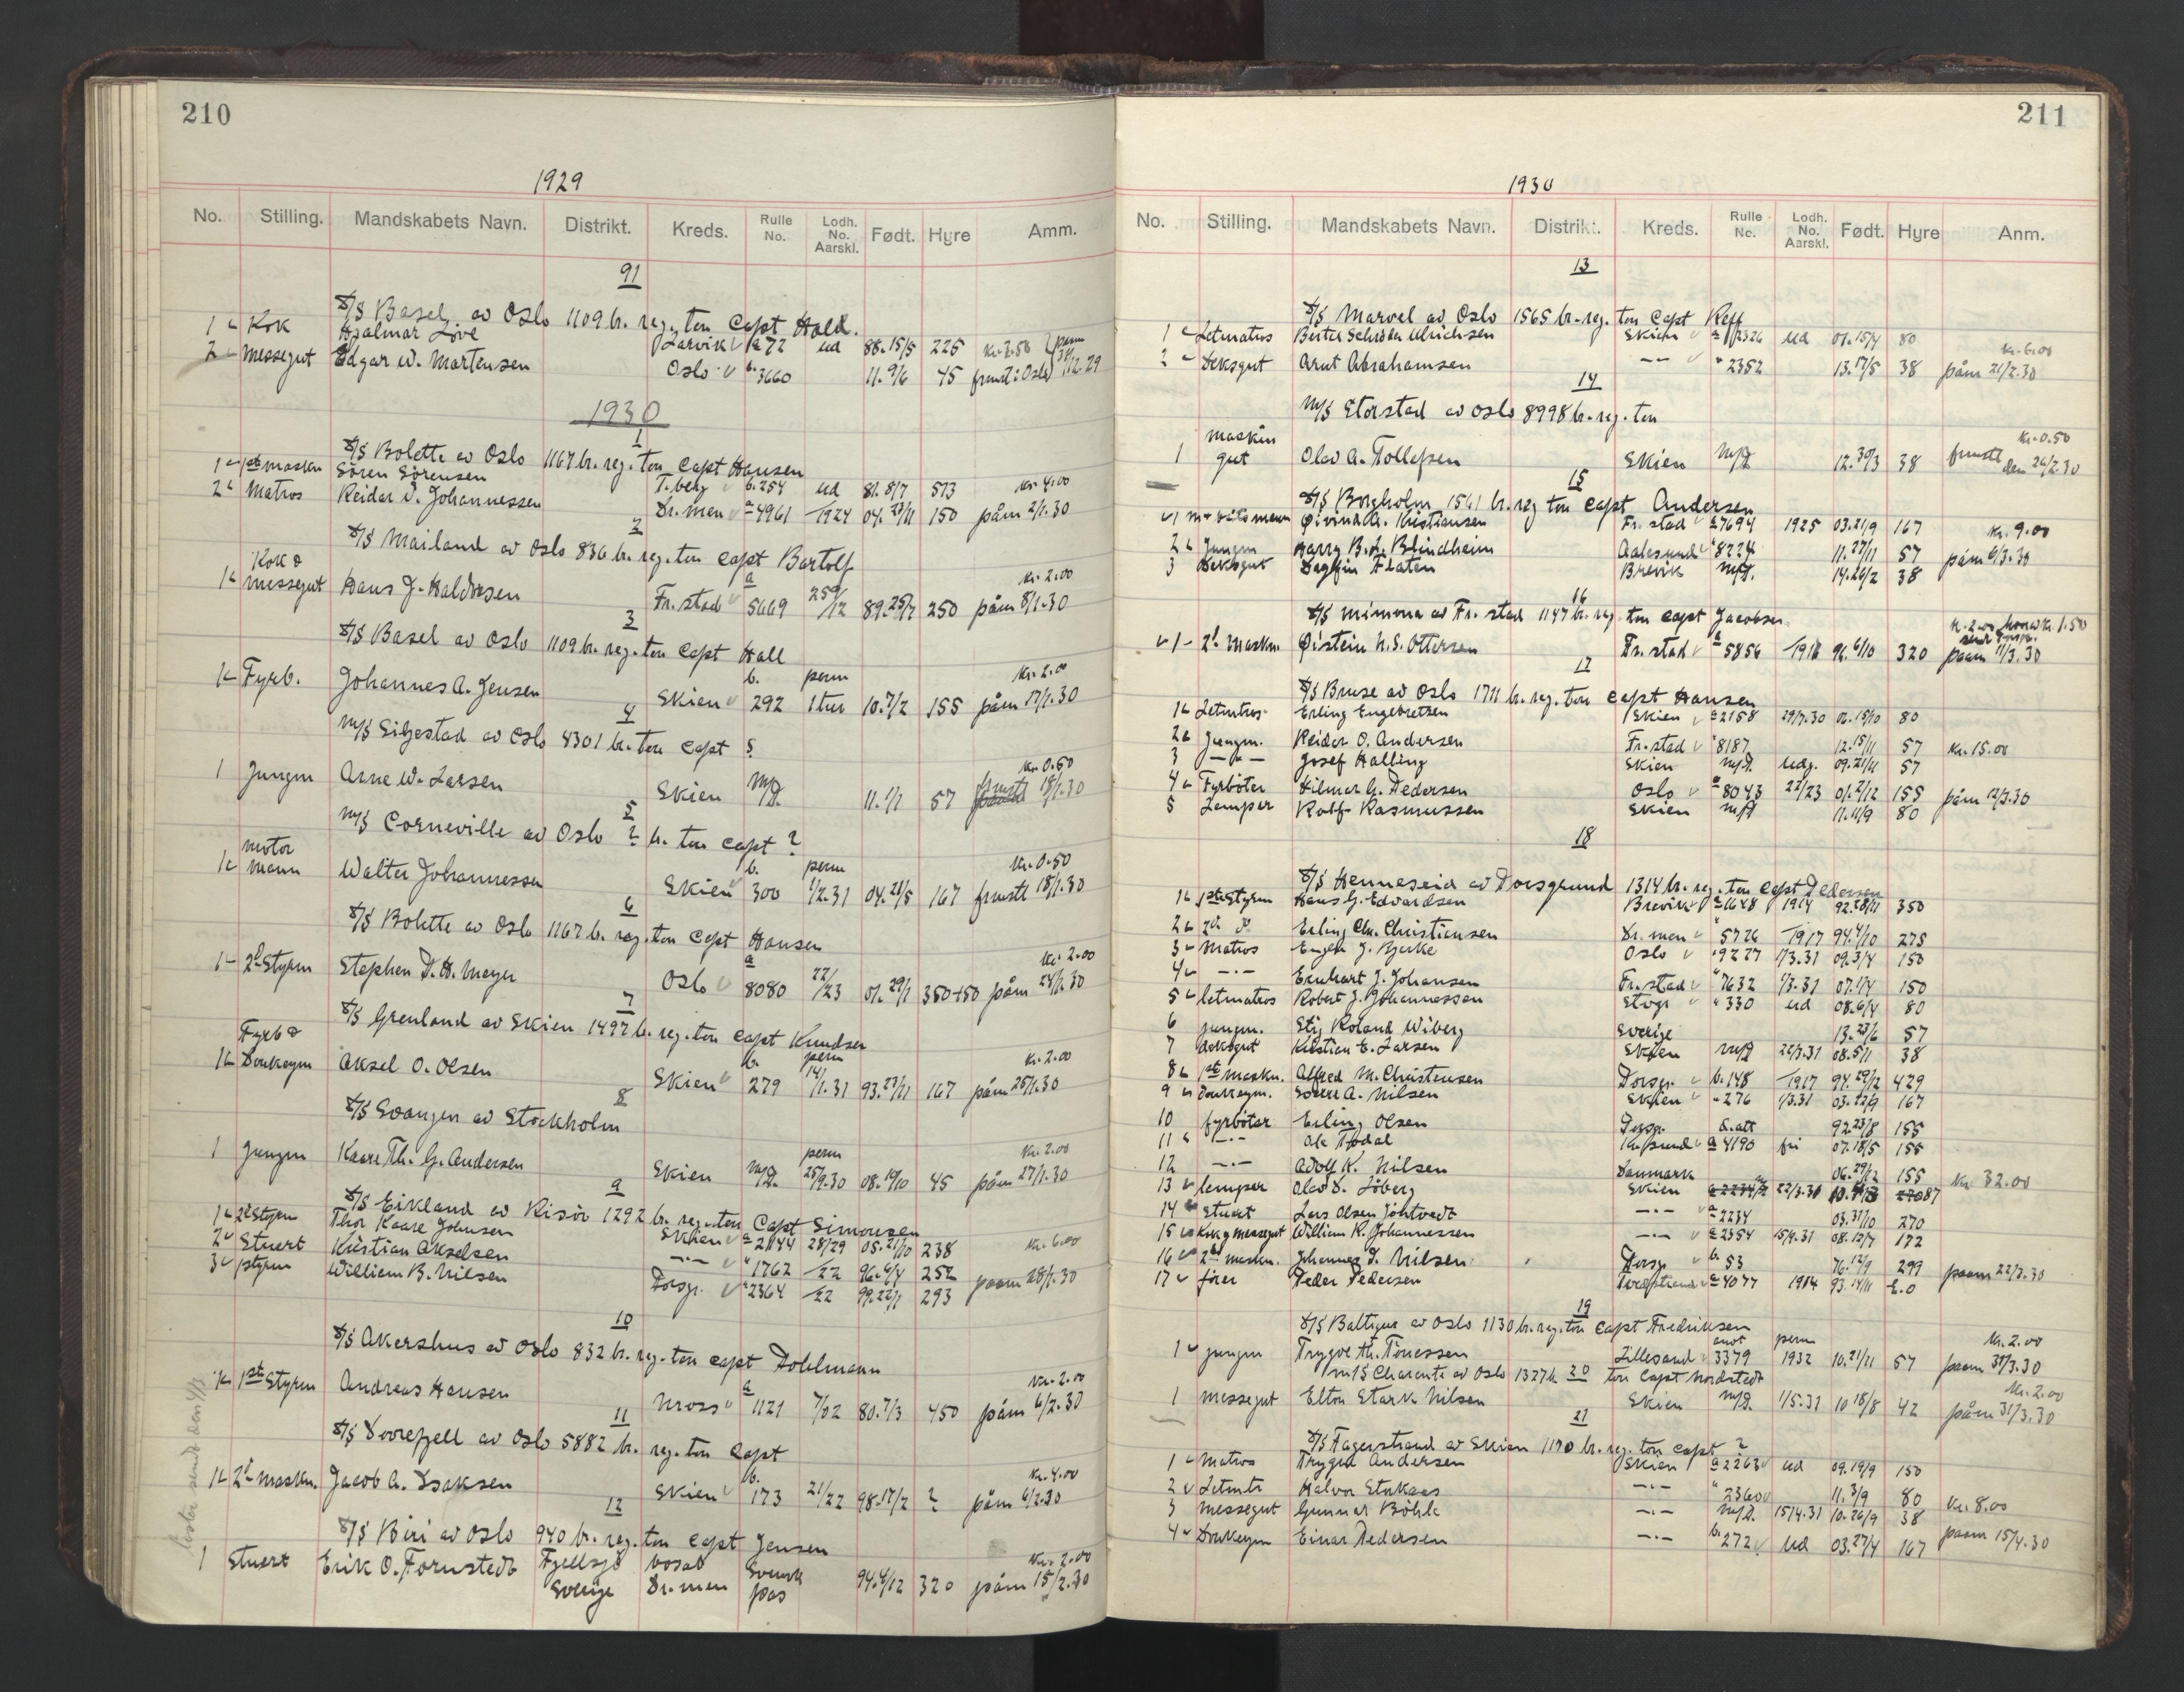 210
1929
No. Stilling. Mandskabets Navn. Distrikt. Kreds. Rulle No. Lodh. No. Aarskl. Født. Hyre Amm.
91
S/S Basel av Oslo 1109 br. reg. ton Capt Hall.
1 Kok Hjalmar Löve Larvik a 72 ud 88.15/5 225 kr. 3.50
2 messegut Edgar W. Martensen Oslo b. 3660 11.9/6 45 frmst i Oslo 12.29
1930
1
S/S Bolette av Oslo 1167 br. reg. ton Capt Hansen
1 1ste maskn Sören Sörensen T.berg b. 254 ud 81.8/7 513 kr. 4.00
2 Matros Reidar D. Johannessen Dr.men a 4961 /1924 04.23/11 150 påm 2/1.30
2
S/S Mailand av Oslo 836 br. reg. ton Capt Bartolf
Kok &
1 messegut Hans J. Haldorsen Fr.stad a 5669 259/12 89.25/7 250 kr. 2.00 påm 8/1.30
3
S/S Basel av Oslo 1109 br. reg. ton Capt Hall
1 Fyrb. Johannes A. Jensen Skien b. 292 perm 1 tur 10.7/2 155 kr. 2.00 påm 17/1.30
4
M/S Siljestad av Oslo 4301 br. ton Capt ?
1 Jungm Arne W. Larsen Skien m/p. 11.1/1 57 kr. 0.50 frmstt 18/1.30
5
M/S Corneville av Oslo ? br. ton Capt ?
motor
1 mann Walter Johannessen Skien b. 300 perm 1/2.31 04.21/5 167 kr. 0.50 frmstt 18/1.30
6
S/S Bolette av Oslo 1167 br. reg. ton Capt Hansen
1 2d Styrm Stephen D. H. Meyer Oslo a 8080 22/23 01.29/1 350+50 kr. 2.00 påm 24/1.30
7
S/S Grenland av Skien 1497 br. reg. ton Capt Knudsen
Fyrb &
1 Donkeym Aksel O. Olsen Skien b. 279 perm 14/1.31 93.23/11 167 kr. 2.00 påm 25/1.30
8
S/S Svangen av Stockholm
1 Jungm Kaare Th. G. Andersen Skien m/p. perm 25/9.30 08.19/10 45 kr. 2.00 påm 27/1.30
9
S/S Eikland av Risör 1292 br. reg. ton Capt Simonsen
1 2d Styrm Thor Kaare Johnsen Skien a 2144 28/29 05.21/10 238 kr. 6.00
2 Stuert Kristian Akselsen -"- " 1762 /22 96.4/4 252
3 1styrm William B. Nilsen Porsgr. " 2364 /22 99.22/1 293 paam 28/1.30
10
S/S Akershus av Oslo 832 br. reg. ton Capt Pohlmann
1 1ste Styrm Andreas Hansen Moss a 1121 7/02 80.7/3 450 kr. 2.00 påm 6/2.30
11
S/S Dovrefjell av Oslo 5882 br. reg. ton Capt
1 2d Maskn. Jacob A. Isaksen Skien b. 173 21/22 98.17/2 ? kr. 4.00 påm 6/2.30
12
S/S Biri av Oslo 940 br. reg. ton Capt Jensen
1 Stuert Erik O. Fornstedt Fjellsjö bosat Svensk 94.4/12 320 kr. 2.00
Sverige Dr.men pas påm 15/2.30
211
1930
No. Stilling. Mandskabets Navn. Distrikt. Kreds. Rulle No. Lodh. No. Aarskl. Født. Hyre Anm.
13
S/S Marvel av Oslo 1565 br. reg. ton Capt Reff
1 Letmatros Berter Schröder Ulrichsen Skien a 2326 ud 07.15/4 80
2 Deksgut Arnt Abrahamsen -"- " 2352 13.17/5 38 kr. 6.00 påm 21/2.30
14
M/S Storstad av Oslo 8998 br. reg. ton
maskin
1 gut Olav A. Tollefsen Skien m/p 12.30/3 38 kr. 0.50 frmstt den 26/2.30
15
S/S Borgholm 1561 br. reg ton Capt Andersen
1 Øivind A. Kristiansen Fr.stad a 7694 1925 03.21/9 167 kr. 9.00
2 Jungm Harry B. L. Blindheim Aalesund " 8224 11.27/11 57 påm 6/3.30
3 Deksgut Dagfin Flaten Brevik m/p. 14.26/2 38
16
S/S Mimona av Fr.stad 1147 br. reg. ton Capt Jacobsen
1 2d Maskn. Øistein N. S. Ottersen Fr.stad a 5856 /1918 96.6/10 320 paam 11/3.30
17
S/S Bruse av Oslo 1711 br. reg. ton Capt Hansen
1 Letmtros. Erling Engebretsen Skien a 2158 29/7.30 06.15/10 80
2 Jungm. Reidar O. Andersen Fr.stad " 8187 12.15/11 57 kr. 15.00
3 -"- Josef Halling Skien m/p. udg. 09.21/11 57
4 Fyrböter Hilmar G. Pedersen Oslo a 8043 22/23 01.2/12 155 påm 12/3.30
5 Lemper Rolf Rasmussen Skien m/p 11.11/9 80
18
S/S Henneseid av Porsgrund 1314 br. reg. ton Capt Pedersen
1 1ste Styrm Hans G. Edvardsen Brevik a 1648 1914 92.28/11 350
2 2d do Erling Chr. Christiansen Dr.men " 5726 /1917 94.4/10 275
3 Matros Eugen J. Bjerke Oslo " 9227 1/3.31 09.3/4 150
4 -"- Erehart J. Johansen Fr.stad " 7632 1/3.31 07.1/4 150
5 letmatros Robert J. Johannessen Stvgr " 330 ud 08.6/4 80
6 jungm. Stig Roland Wiberg Sverige 13.23/6 57
7 deksgut Kristian E. Larsen Skien m/p 26/3.31 08.5/11 38
8 1ste Maskn. Alfred M. Christensen Porsgr. b. 148 /1917 94.29/12 429
9 Donkeym. Sverre A. Nilsen Skien " 276 1/3.31 03.22/9 167
10 fyrböter Erling Olsen Porsgr. d.att 92.23/8 155
11 -"- Ole Todal Kr.sund a 4190 fri 07.18/5 155
12 -"- Adolf K. Nilsen Danmark 06.29/12 155
13 lemper Olav D. Löberg Skien 22/3.31 87 kr 32.00
14 Stuert Lars Olsen Johtvedt -"- a 2234 03.31/10 270
15 Kok g messegut William R. Johannessen -"- a 2354 15/9.31 08.12/7 172
16 2d maskn. Johannes D. Nilsen Porsgr b. 53 76.12/9 299 paam 22/3.30
17 förer Peder Pedersen Tvedestrand a 4077 1914 93.14/11 E.0
19
S/S Baltigus av Oslo 1130 br. reg. ton Capt Fredriksen
1 jungm Trygve Th. Tönessen Lillesand 3379 perm 1932 10.21/11 57 kr. 2.00 paam 31/3.30
20
M/S Charente av Oslo 1327 br ton Capt Nordstedt
1 messegut Elton Stark Nilsen Skien m/p. 1/5.31 10 18/8 42 kr. 2.00 påm 31/3.30
21
S/S Fagerstrand av Skien 1170 br. reg. ton Capt ?
1 Matros Trygve Andersen Skien a 2263 ud 09.19/9 150
2 Letmtr Halvor Stokaas -"- " 2360 11.3/9 80 kr. 8.00
3 messegut Gunnar Böhle -"- m/p. 15/4.31 10.26/9 38
4 Donkeym Einar Pedersen -"- b. 272 ud 03.27/4 167 paam 15/4.30